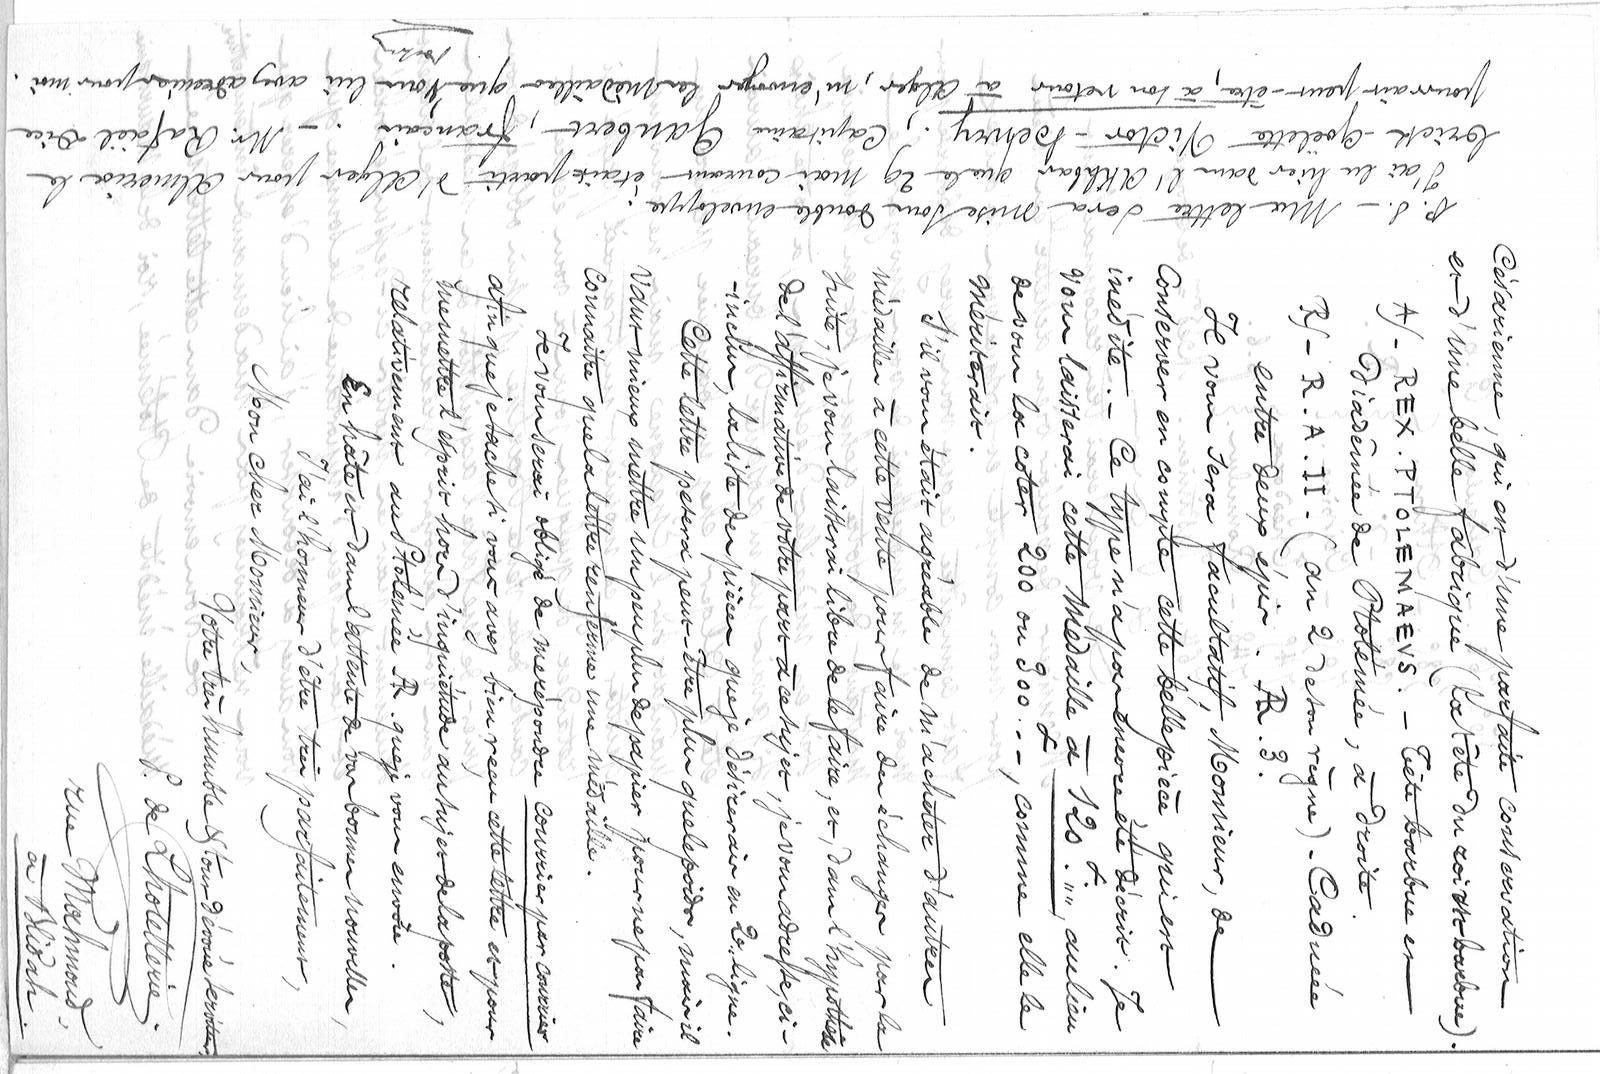 Césarienne, qui est d'une parfaite conservation
et d'une belle fabrique (La tête du roi est barbue).
A/- REX. PTOLEMAEVS. - Tête barbue et
Diadêmée de Ptolémée, à droite.
R/- R. A. II - (an 2 de son règne). Caducée
entre deux épis. - AR. 3.
Il vous sera facultatif, Monsieur, de
conserver en compte cette belle pièce qui est
inédite. - Ce type n'a pas encore été décrit. Je
vous laisserai cette Médaille à 120 f. ,,,, au lieu
de vous la coter 200 ou 300 f --, comme elle le
mériterait.
S'il vous était agréable de m'acheter d'autres
médailles à cette vente pour faire des échanges par la
suite, je vous laisserai libre de le faire, et, dans l'hypothèse
de l'affirmative de votre part à ce sujet, je vous adresse, ci-
-inclus, la liste des pièces que je désirerais en 2e. ligne.
Cette lettre pesera peut-être plus que le poids, mais il
vaut mieux mettre un peu plus de papier pour ne pas faire
connaître que la lettre renferme une médaille.
Je vous serai obligé de me répondre courrier par courrier
afin que je sache si vous avez bien reçu cette lettre et pour
me mettre l'esprit hors d'inquiétude au sujet de la poste,
relativement au Ptolémée AR. que je vous envoie.
En hâte et dans l'attente de vos bonnes nouvelles,
J'ai l'honneur d'être très parfaitement,
Mon cher Monsieur,
Votre très humble & tout dévoué serviteur
P. de Lhotellerie.
rue Mahmoud,
à Blidah.
P. S. - Ma lettre sera mise sous double enveloppe.
J'ai lu hier dans l'Akhbar que le 29 mai courant était parti d'Alger pour Almeria le
brick-goëlette Victor-Henry, Capitaine Gaubert, français. - Mr. Rafaël
pourrait peut-être, à son retour à Alger, m'envoyer les médailles que vous lui avez adressées pour moi.